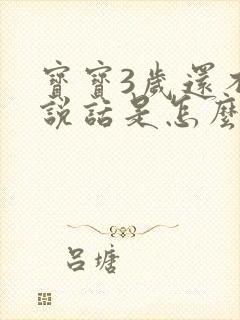 寶寶3歲還不
說話是怎麼
呂塘